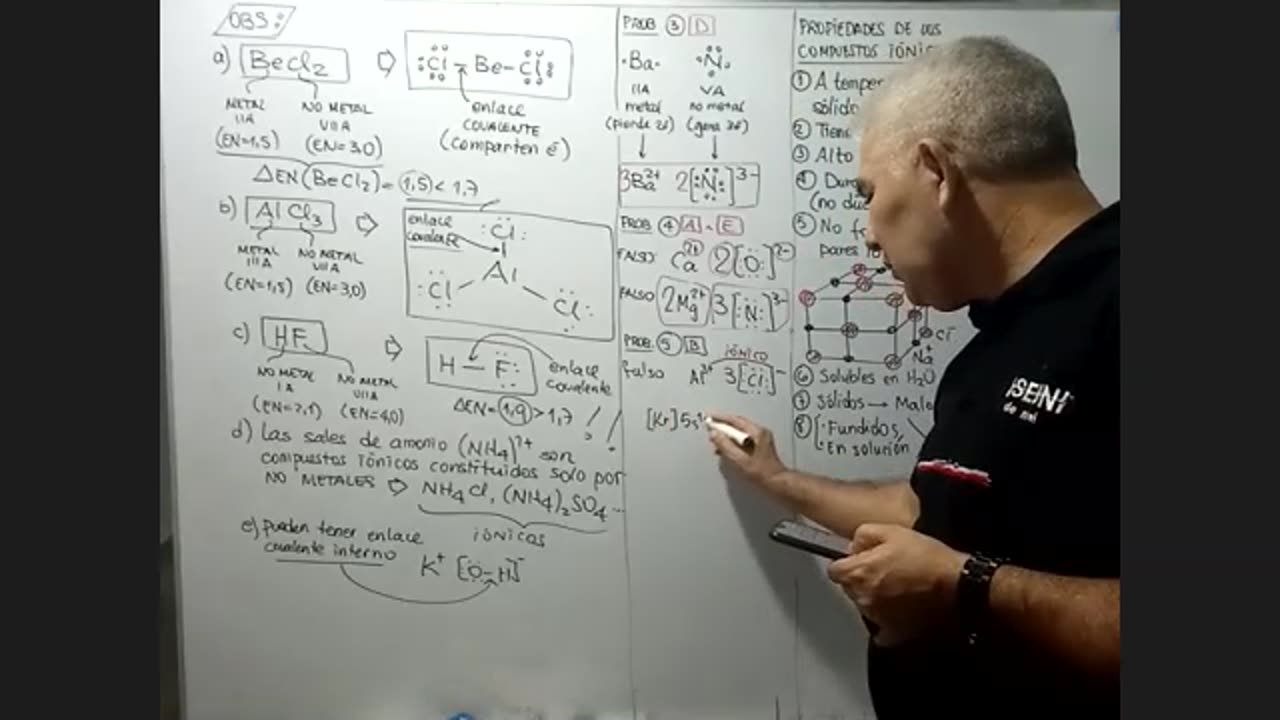 OBS:
a) BeCl2 ⇨ :Cl – Be – Cl:
METAL IIA
NO METAL VIIA
(EN=1,5) (EN=3,0)
enlace
COVALENTE
(comparten é)
ΔEN(BeCl2) = 1,5 < 1,7
b) AlCl3 ⇨
enlace
covalente
:Cl:
Al
:Cl
Cl:
METAL IIIA
NO METAL VIIA
(EN=1,5) (EN=3,0)
c) HF ⇨ H – F:
enlace
covalente
NO METAL IA
NO METAL VIIA
(EN=2,1) (EN=4,0)
ΔEN=1,9 > 1,7
d) las sales de amonio (NH4)1+ son
compuestos iónicos constituidos solo por
NO METALES ⇨ NH4Cl, (NH4)2SO4...
iÓNICOS
e) pueden tener enlace
covalente interno
K+ [O–H]-
PROB 3 D
·Ba· ·N·
IIA VA
metal no metal
(pierde 2é) (gana 3é)
3Ba2+ 2[:N:]3-
PROB 4 A - E
FALSO Ca2+ 2[O:]2-
FALSO 2Mg2+ 3[:N:]3-
PROB. 5 B
iÓNICO
falso Al3+ 3[Cl:]-
[Kr]5s
PROPIEDADES DE LOS
COMPUESTOS IÓNIC
1 A temper
sólido
2 Tien
3 Alto
4
(no
5 No
pares
Cl-
Na+
6 Solubles en H2O
7 Sólidos → Malo
8 · Fundidos
· En solución